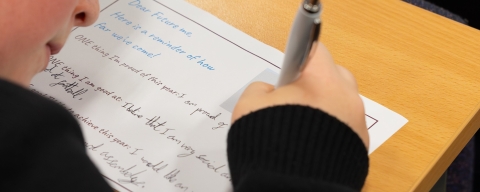 Dear Future me,
Here is a reminder of how
far we've come!
ONE thing I'm proud of this year: I am proud of
ONE thing I am good at: I believe that I am very good at
football,
achieve this year: I would like
and